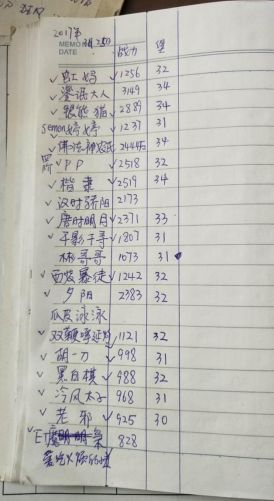 2017年
MEMO
DATE 战力 堡
虹妈 1256 32
大人 3149 34
银熊猫 2889 34
semon婷婷 1237 31
神农氏 24445 34
PP 2518 32
楷集 2519 34
汉时骄阳 2173
唐时明月 2371 33
千影千寻 1807 31
林哥哥 1073 31
西发暴徒 1242 32
夕阳 2383 32
瓜皮泳泳
双鞭呼延灼 1121 32
胡一刀 998 31
黑白棋 988 32
冷风太子 968 31
老邪 925 30
ET 828